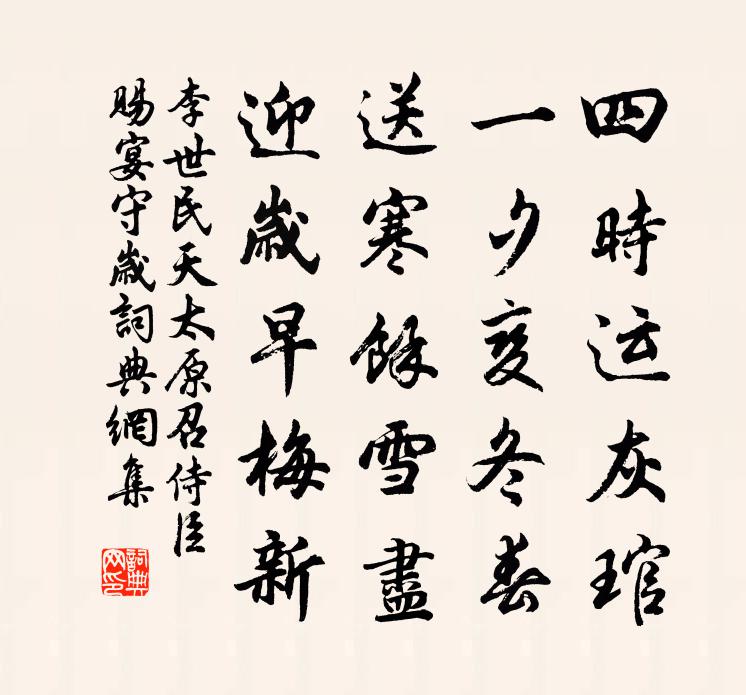 四時运灰琯
一夕变冬春
送寒餘雪盡
迎歲早梅新
李世民天太原召侍臣
賜宴守歲詞典網集
詞典
网印